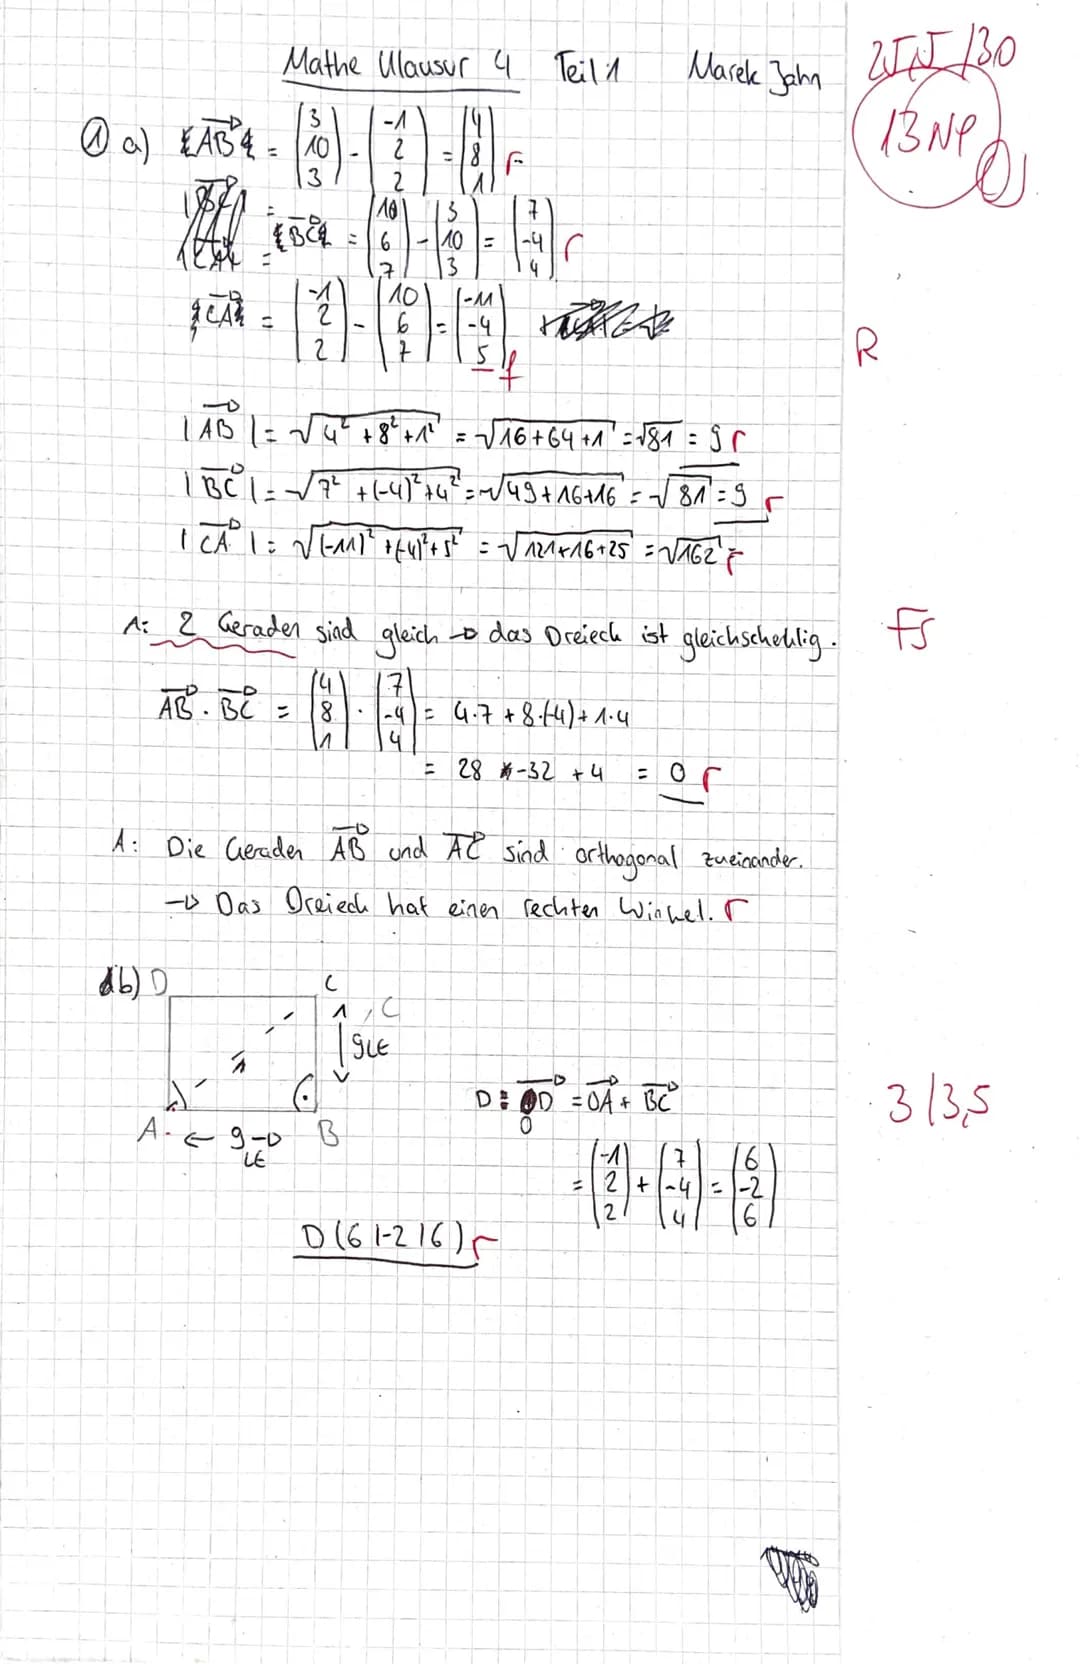 Mathe Klausur 4 Teil 1 Marek Jahn
/30
13 NP
① a) AB = (3 10 3) - (-1 2 2) = (4 8 1) r
BC = (10 6 7) - (3 10 3) = (7 -4 4) r
CA = (-1 2 2) - (10 6 7) = (-11 -4 5) f
R
|AB| = √4² + 8² + 1² = √16 + 64 + 1 = √81 = 9 r
|BC| = √7² + (-4)² + 4² = √49 + 16 + 16 = √81 = 9 r
|CA| = √(-11)² + (-4)² + 5² = √121 + 16 + 25 = √162 r
A: 2 Geraden sind gleich → das Dreieck ist gleichschenklig.
FS
AB · BC = (4 8 1) · (7 -4 4) = 4·7 + 8·(-4) + 1·4
= 28 -32 + 4 = 0 r
A: Die Geraden AB und AC sind orthogonal zueinander.
→ Das Dreieck hat einen rechten Winkel. r
b) D C
C
9LE
A ← 9 → B
LE
D: OD = OA + BC
3/3,5
= (-1 2 2) + (7 -4 4) = (6 -2 6)
D(6|-2|6) r